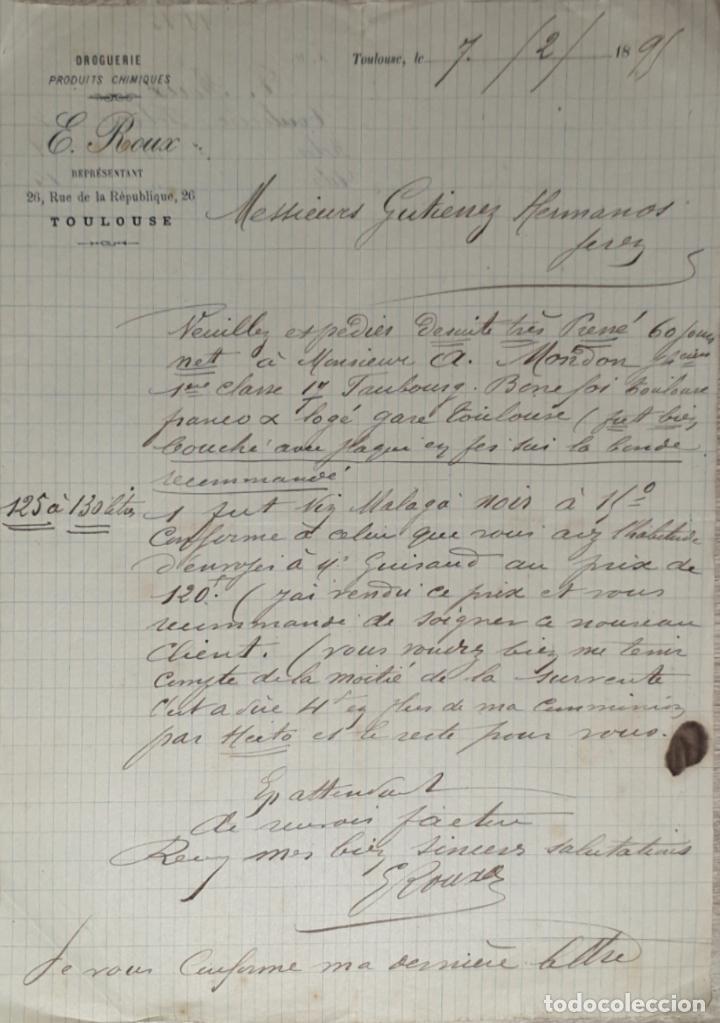 DROGUERIE
PRODUITS CHIMIQUES
E. Roux
REPRÉSENTANT
26, Rue de la République, 26
TOULOUSE
Toulouse, le 7 / 2 / 1895
Messieurs Gutierrez Hermanos
Jerez
Veuillez expédier desuite très Pressé 60 jours
net à Monsieur A. Mondon
1ere classe 1r Faubourg. Bonnefoi Toulouse
franco & logé gare toulouse ( fut bien
bouché avec plaque en fer sur la bonde
recommandé
125 à 130 litres
1 fut Vin Malaga noir à 15°
Conforme à celui que vous avez l'habitude
d'envoyer à Mr Guiraud au prix de
120f. ( j'ai vendu ce prix et vous
recommande de soigner ce nouveau
Client. ( vous voudrez bien me tenir
Compte de la moitié de la survente
C'est a dire 4f en plus de ma Commission
par Hecto et le reste pour vous.
En attendant
de recevoir facture
Recevez mes bien sincères salutations
E Roux
Je vous Confirme ma dernière lettre
todocoleccion